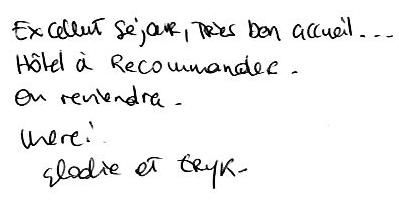 Excellent séjour, très bon accueil...
Hôtel à Recommander.
On reviendra.
Merci
Elodie et ERYK.